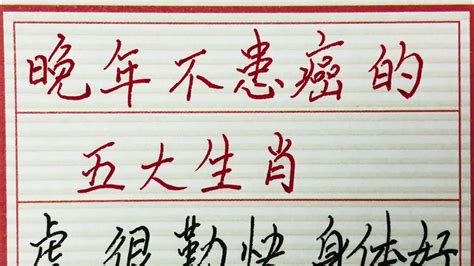 晚年不患癌的
五大生肖
虎很勤快身体好